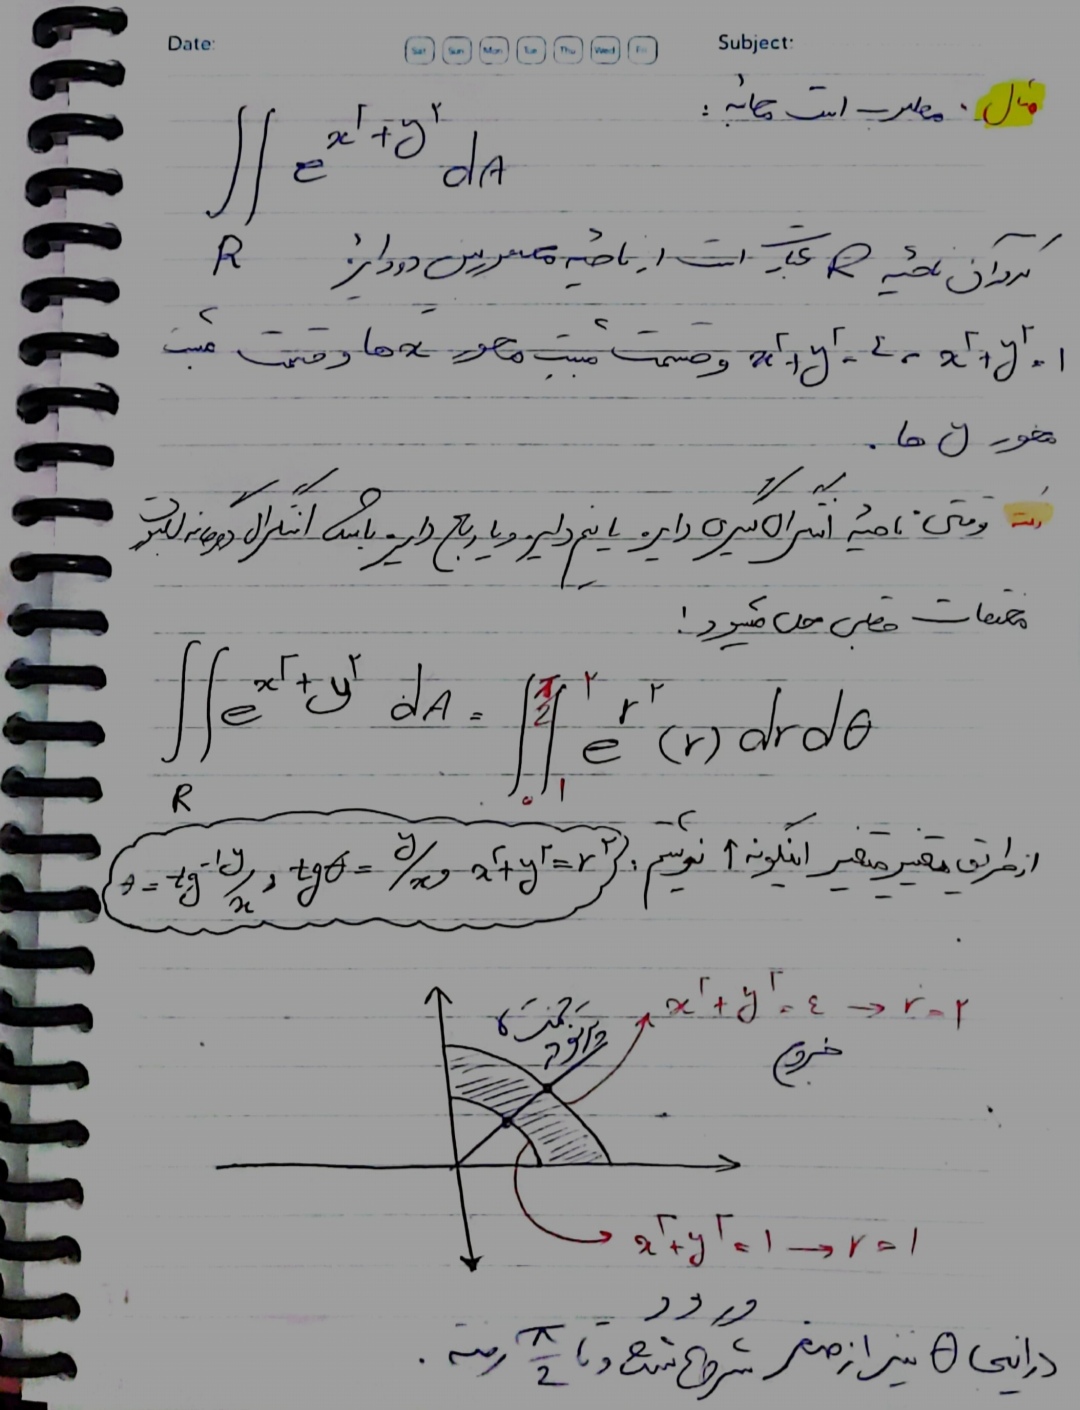 Date: Sat Sun Mon Tue Thu Wed Fri Subject:
مثال. مطلوب است محاسبه:
∬ e^(x²+y²) dA
R
که در آن ناحیه R عبارت است از ناحیه محصور بین دو دایره
x²+y²=1 و x²+y²=٤ و قسمت مثبت محور xها و قسمت مثبت
محور y ها.
نکته وقتی ناحیه انتگرال گیری دایره یا نیم دایره و یا ربع دایره باشد انتگرال دوگانه
مختصات قطبی حل میشود!
∬ e^(x²+y²) dA = ∫₀^(π/2) ∫₁^۲ e^(r²) (r) dr dθ
R
از طریق تغییر متغیر اینگونه ↑ نوشتیم: x²+y²=r² و tgθ=y/x و θ=tg⁻¹ y/x
x²+y²=٤ → r=۲
خروج
x²+y²=1 → r=1
ورود
در اینجا θ نیز از صفر شروع شده و تا π/2 رفته.